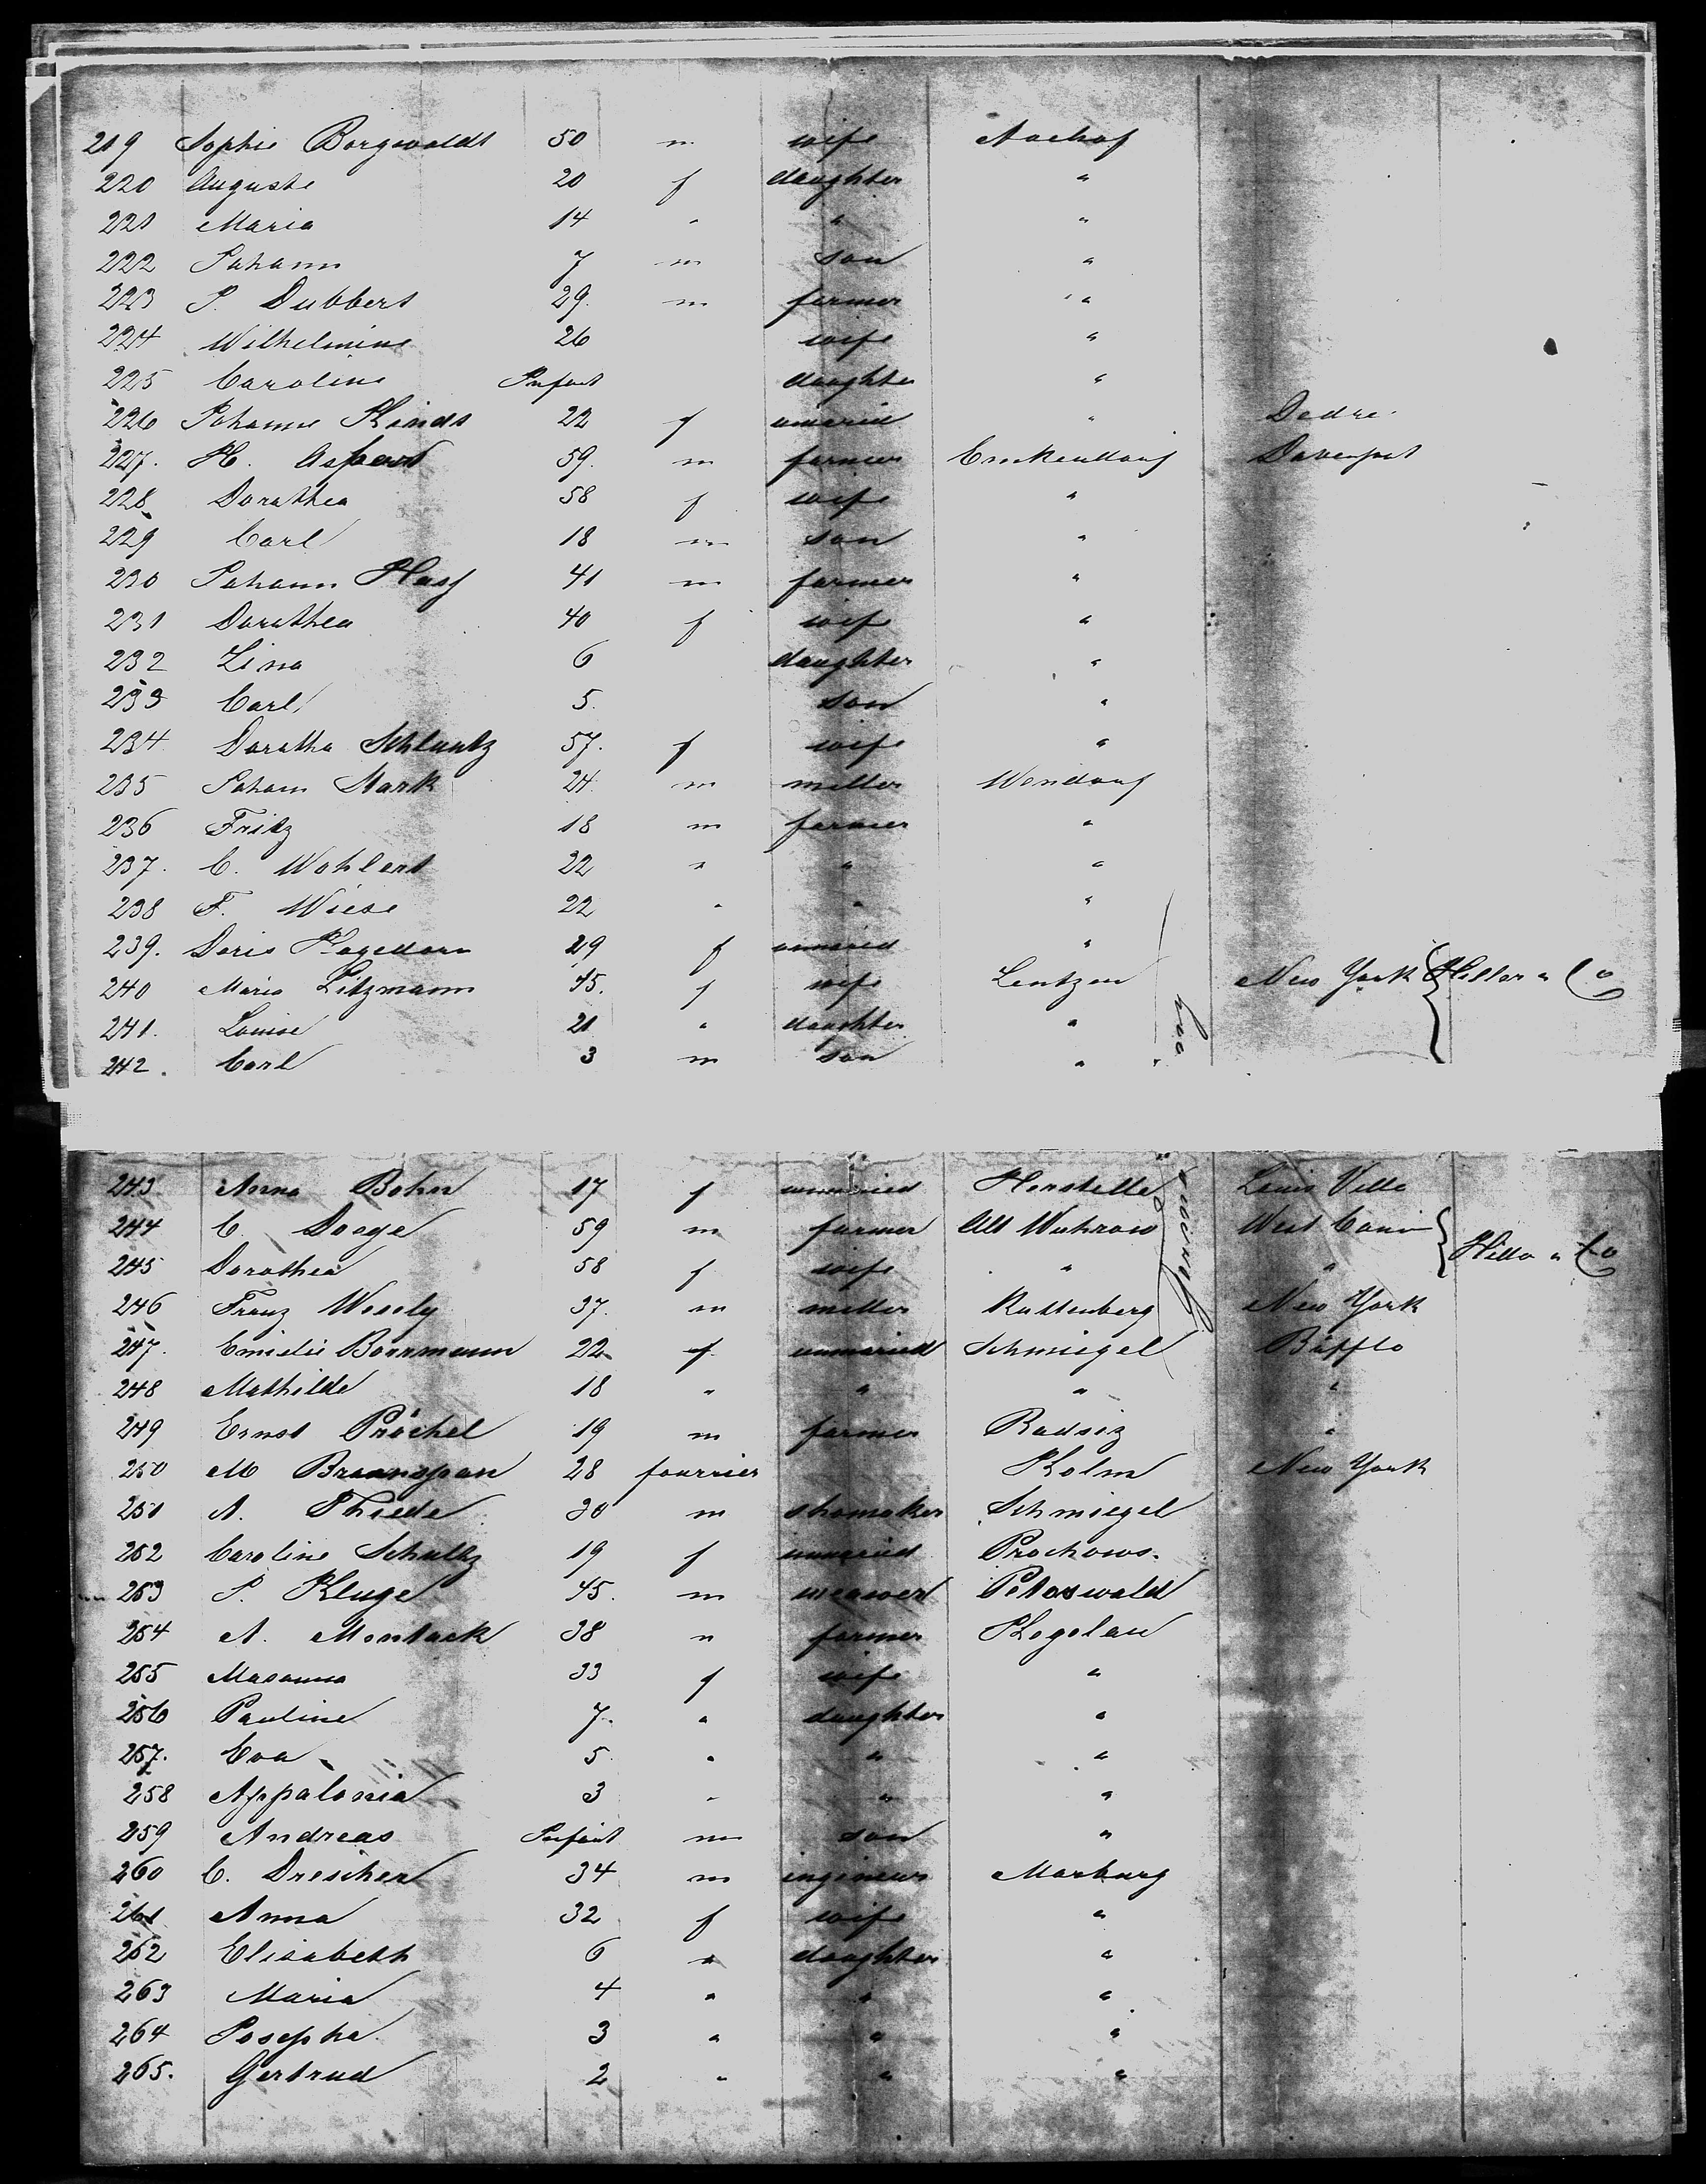 219 Sophie Borgwaldt 50 m wife Aschof
220 Auguste 20 f daughter "
221 Maria 14 " " "
222 Johann 7 m son "
223 J. Dubbers 29. m farmer "
224 Wilhelmine 26 wife "
225 Caroline Infant daughter "
226 Johanne 22 f "
227. H. 59. m farmer Emkendorf Davenport
228 Dorothea 58 f wife "
229 Carl 18 m son "
230 Johann 41 m farmer "
231 Dorothea 40 f wife "
232 Lina 6 daughter "
233 Carl 5. son "
234 Doratha 57. f wife "
235 Johann Stark 24 m miller Wendorf
236 Fritz 18 m farmer "
237. C. Wohlert 22 " " "
238 F. Wiese 22 " " "
239. Doris Hagedorn 29 f unmaried "
240 Maria Litzmann 45. f wife Lentzen New York Hiller & Co
241. Louise 21 " daughter "
242. Carl 3 m son "
243 Anna Bohn 17 f unmaried Herstelle Louis Ville
244 C. Doege 59 m farmer Alt West
245 Dorothea 58 f wife " " & Co
246 Franz Wesely 37. m miller Kuttenberg New York
247. Emilie Bormann 22 f unmaried Schmiegel Bufflo
248 Mathilde 18 " " " "
249 Ernst Pröchel 19 m farmer Radsiz "
250 M Braunspan 28 fourrier Kolm New York
251 A. Thiede 30 m shomaker Schmiegel
252 Caroline Schultz 19 f unmaried Prochows.
253 J. Kluge 45. m Peterswald
254 A. Montack 38 " farmer Kogolau
255 Marianna 33 f wife "
256 Pauline 7. " daughter "
257. Eva 5 " " "
258 Appalonia 3 " " "
259 Andreas Infant m son "
260 C. Drescher 34 m ingineur Marburg
261 Anna 32 f wife "
262 Elisabeth 6 " daughter "
263 Maria 4 " " "
264 Josepha 3 " " "
265. Gertrud 2 " " "